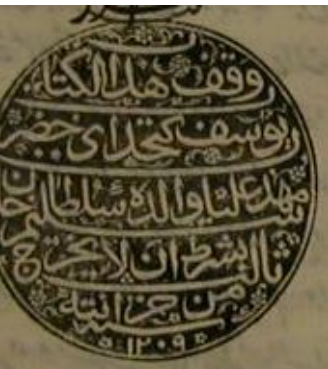 وقف هذا الكتاب
يوسف كتخداى حضرت
مهد عليا والده سلطان سليم خان
ثالث بشرط ان لا يخرج
من خزانته
١٢٠٩